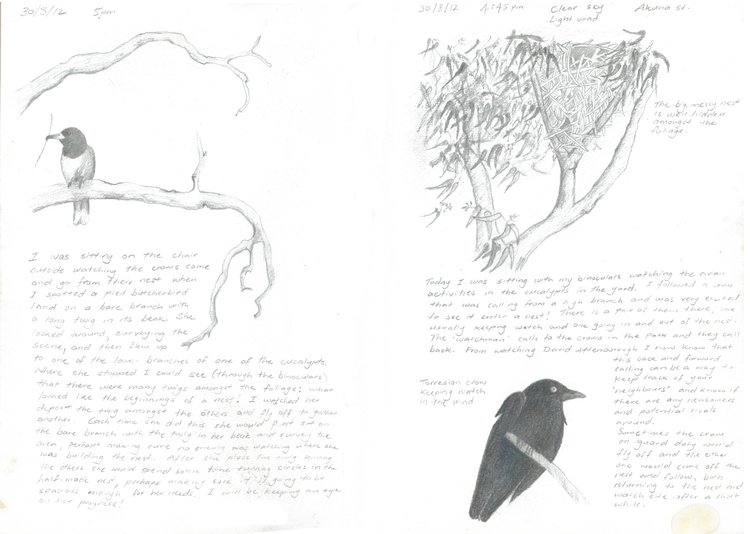 30/8/12 5pm
I was sitting on the chair
outside watching the crows come
and go from their nest when
I spotted a pied butcherbird
land on a bare branch with
a long twig in its beak. She
looked around, surveying the
scene, and then flew up
to one of the lower branches of one of the eucalypts.
Where she stopped I could see (through the binoculars)
that there were many twigs amongst the foliage: what
looked like the beginnings of a nest! I watched her
deposit the twig amongst the others and fly off to gather
another. Each time she did this she would first sit on
the bare branch with the twig in her beak and survey the
area, perhaps making sure no enemy was watching where she
was building the nest. After she place the twig among
the others she would spend some time turning circles in the
half-made nest, perhaps making sure it is going to be
spacious enough for her needs. I will be keeping an eye
on her progress!
30/8/12 4:45pm Clear sky Akuna st.
Light wind
The big messy nest
is well hidden
amongst the
foliage
Today I was sitting with my binoculars watching the avian
activities in the eucalypts in the yard. I followed a crow
that was calling from a high branch and was very excited
to see it enter a nest! There is a pair of them there, one
usually keeping watch and one going in and out of the nest.
The 'watchman' calls to the crows in the park and they call
back. From watching David Attenborough I now know that
this back and forward
calling can be a way to
keep track of your
'neighbours' and know if
there are any newcomers
and potential rivals
around.
Sometimes the crow
on guard duty would
fly off and the other
one would come off the
nest and follow, both
returning to the nest and
watch site after a short
while.
Torresian crow
keeping watch
in the wind